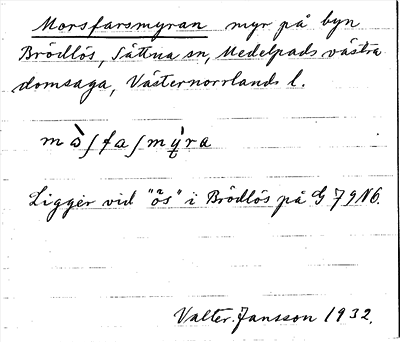 Morsfarsmyran myr på byn
Brödlös, Sättna sn, Medelpads västra
domsaga, Västernorrlands l.
mɷ̀ʃfaʃmỳ̨ra
Ligger vid "ös" i Brödlös på G 79 N6.
Valter Jansson 1932.